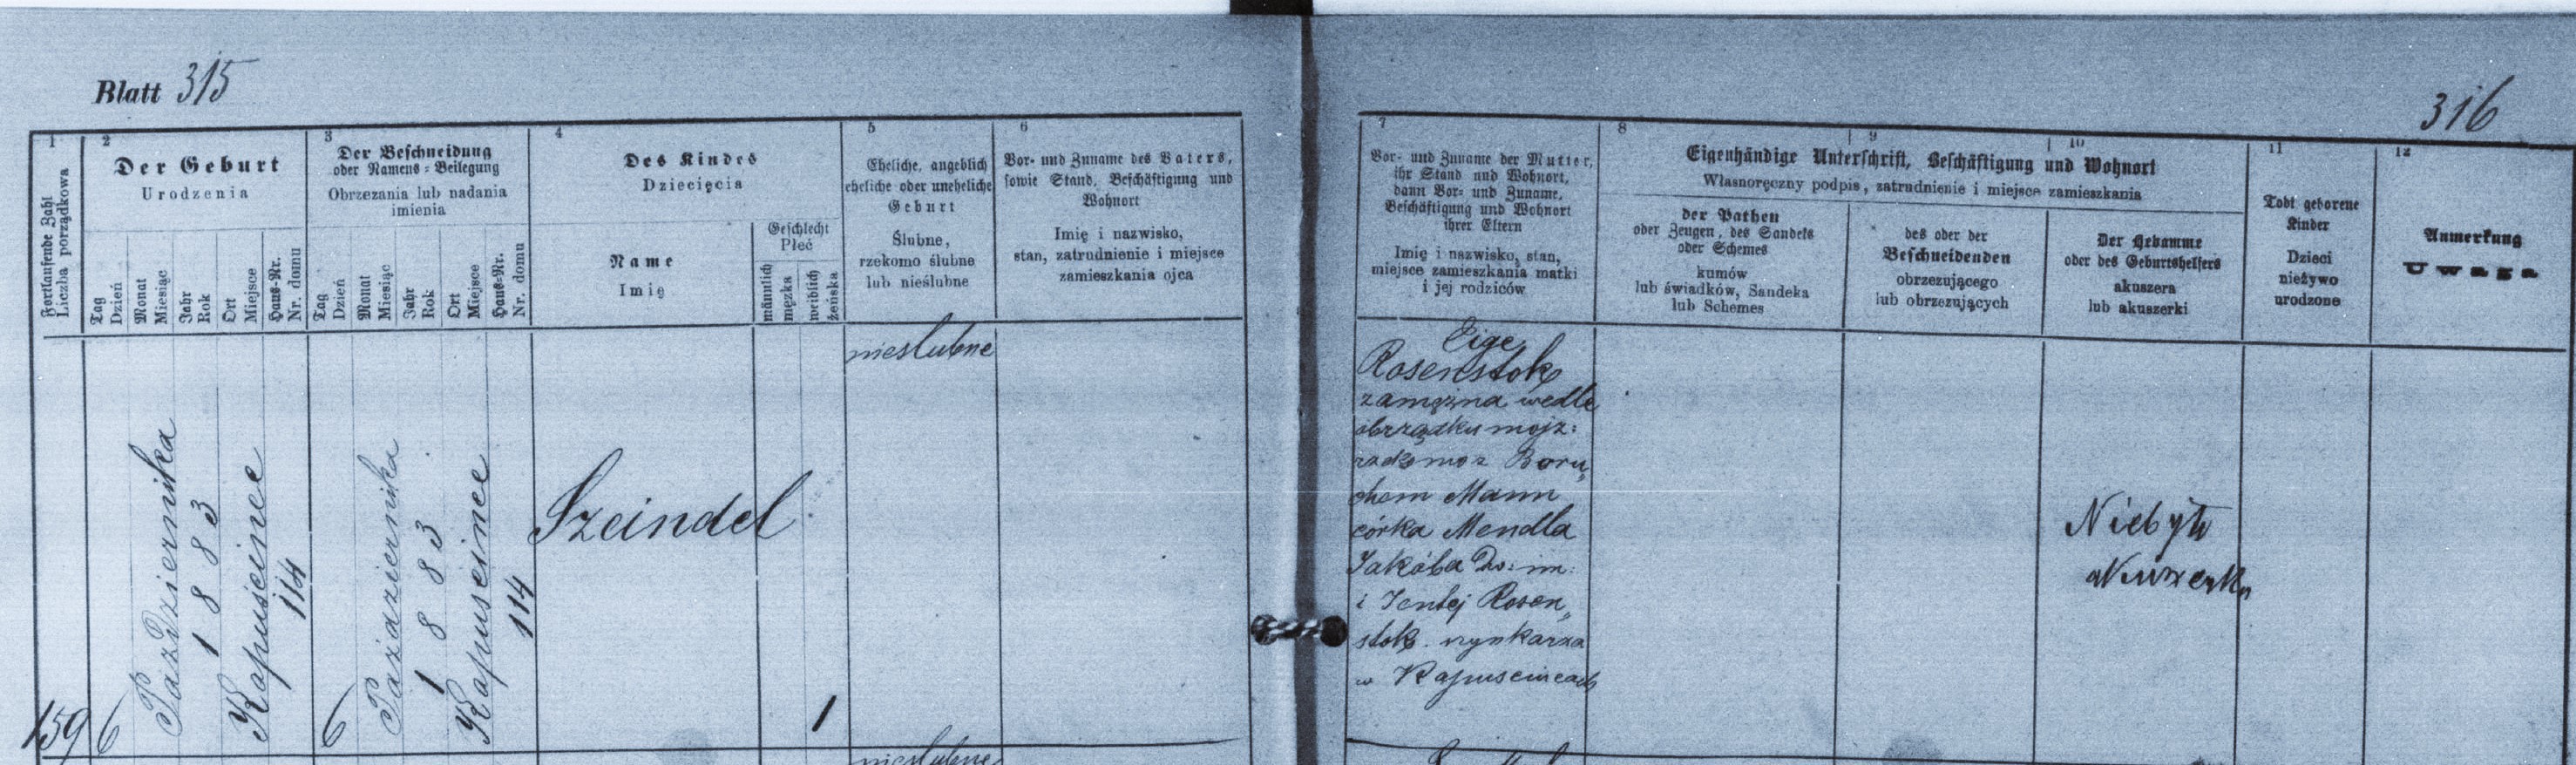 Blatt 315
316
1
2
3
4
5
6
7
8
9
10
11
12
Fortlaufende Zahl
Liczba porządkowa
Der Geburt
Urodzenia
Tag
Dzień
Monat
Miesiąc
Jahr
Rok
Ort
Miejsce
Haus-Nr.
Nr. domu
Der Beschneidung
oder Namens-Beilegung
Obrzezania lub nadania
imienia
Tag
Dzień
Monat
Miesiąc
Jahr
Rok
Ort
Miejsce
Haus-Nr.
Nr. domu
Des Kindes
Dziecięcia
Name
Imię
Geschlecht
Płeć
männlich
męzka
weiblich
żeńska
Eheliche, angeblich
eheliche oder uneheliche
Geburt
Ślubne,
rzekomo ślubne
lub nieślubne
Vor- und Zuname des Vaters,
sowie Stand, Beschäftigung und
Wohnort
Imię i nazwisko,
stan, zatrudnienie i miejsce
zamieszkania ojca
Vor- und Zuname der Mutter,
ihr Stand und Wohnort,
dann Vor- und Zuname,
Beschäftigung und Wohnort
ihrer Eltern
Imię i nazwisko, stan,
miejsce zamieszkania matki
i jej rodziców
Eigenhändige Unterschrift, Beschäftigung und Wohnort
Własnoręczny podpis, zatrudnienie i miejsce zamieszkania
der Pathen
oder Zeugen, des Sandeks
oder Schemes
kumów
lub świadków, Sandeka
lub Schemes
des oder der
Beschneidenden
obrzezującego
lub obrzezujących
Der Hebamme
oder des Geburtshelfers
akuszera
lub akuszerki
Todt geborene
Kinder
Dzieci
nieżywo
urodzone
Anmerkung
Uwaga
159
6
Października
1883
Kapuścince
114
6
Października
1883
Kapuscince
114
Szeindel
1
nieslubne
Eige
Rosenstok
zamężna wedle
obrządku mojż:
Boru„
chem Mann
córka Mendla
Jakóba
i Rosen„
stok
w Kapuscincach
Niebyło
akuszerki
nieslubne